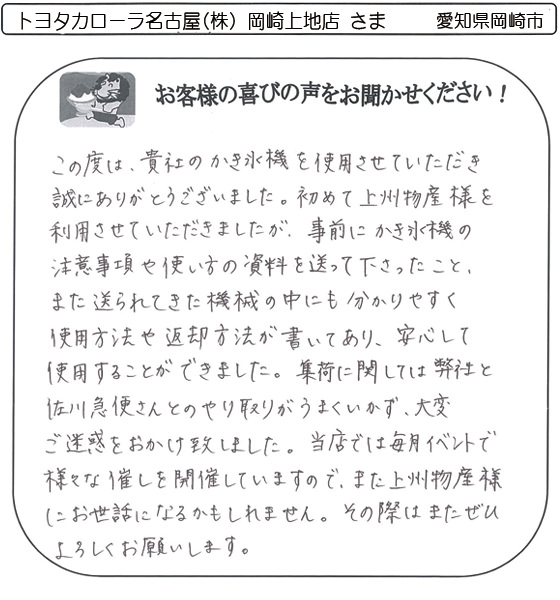 トヨタカローラ名古屋(株) 岡崎上地店 さま 愛知県岡崎市
お客様の喜びの声をお聞かせください！
この度は、貴社のかき氷機を使用させていただき
誠にありがとうございました。初めて上州物産様を
利用させていただきましたが、事前にかき氷機の
注意事項や使い方の資料を送って下さったこと、
また送られてきた機械の中にも分かりやすく
使用方法や返却方法が書いてあり、安心して
使用することができました。集荷に関しては弊社と
佐川急便さんとのやり取りがうまくいかず、大変
ご迷惑をおかけ致しました。当店では毎月イベントで
様々な催しを開催していますので、また上州物産様
にお世話になるかもしれません。その際はまたぜひ
よろしくお願いします。